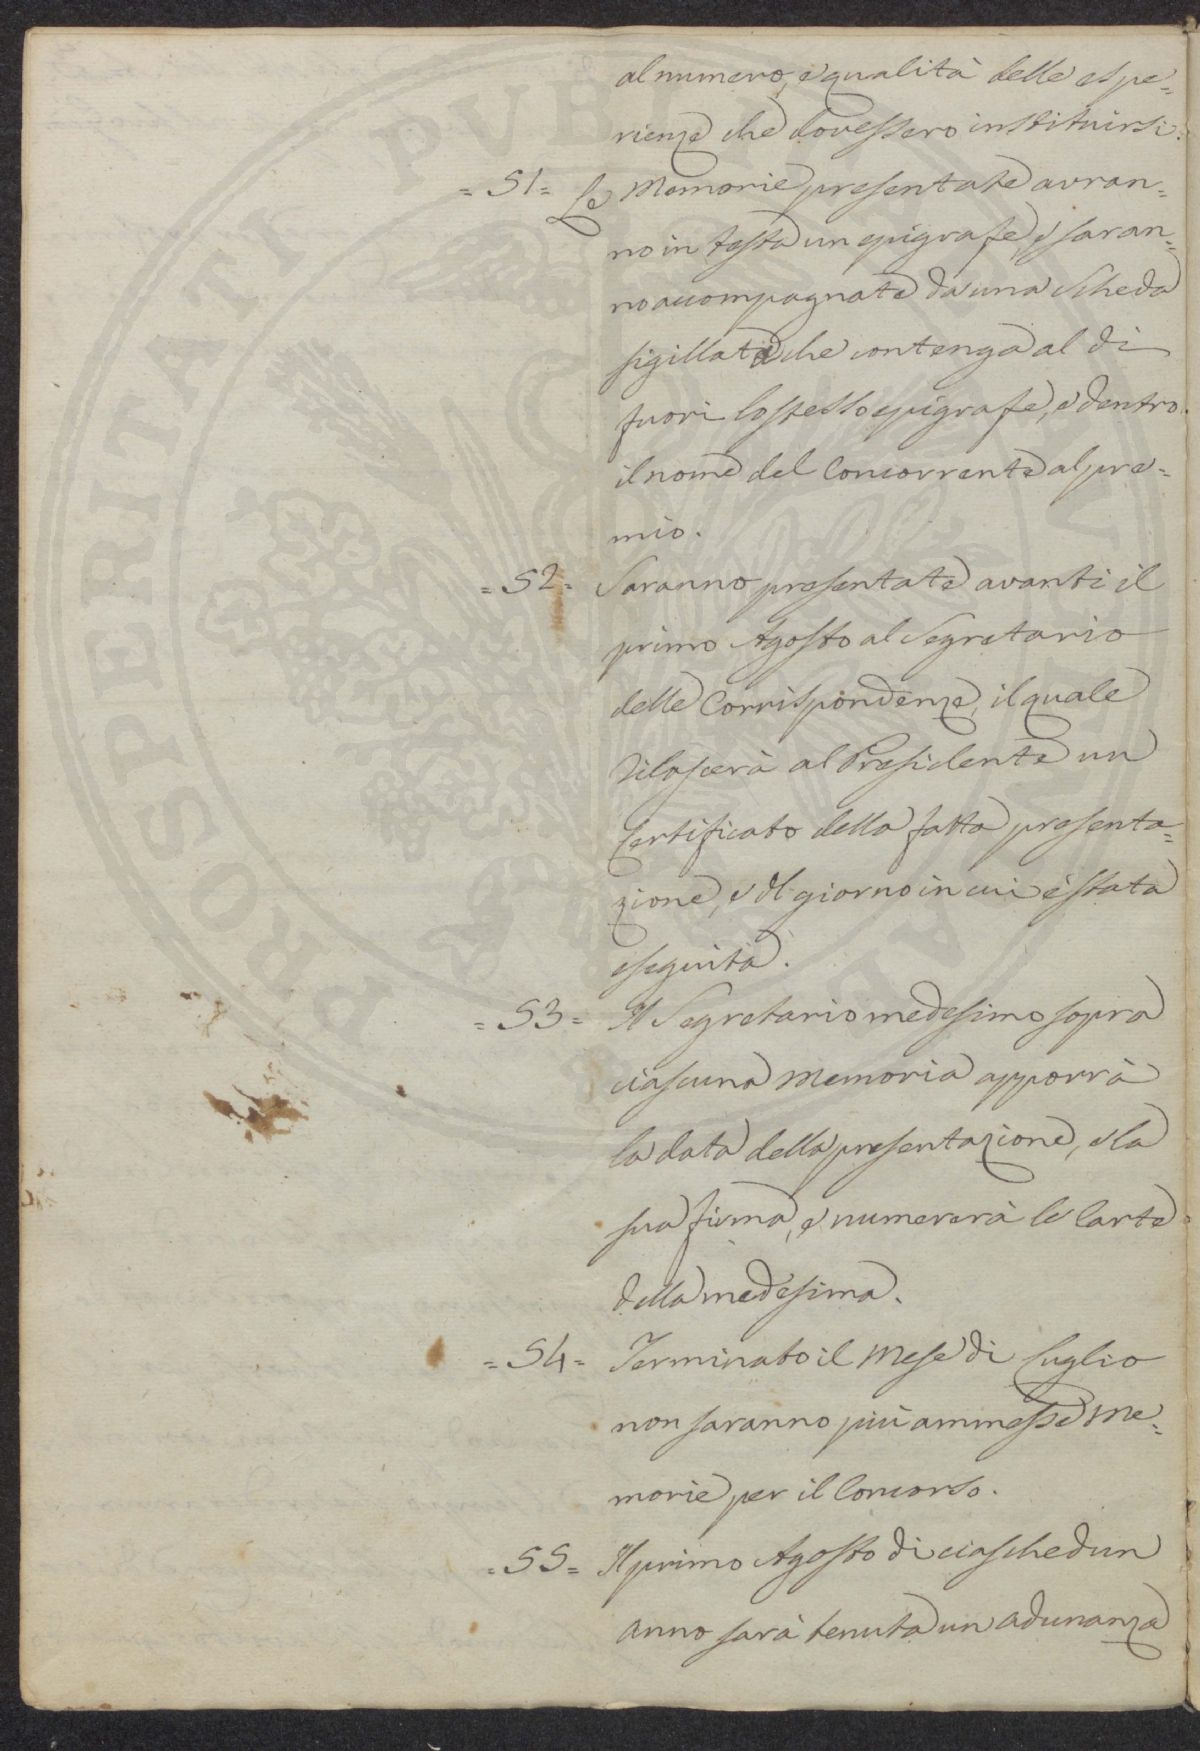 al numero, e qualità delle espe=
rienze che dovessero instituirsi.
= 51 = Le Memorie presentate avran=
no in testa un epigrafe, e saran=
no accompagnate da una scheda
sigillata che contenga al di
fuori lo stesso epigrafe, e dentro
il nome del Concorrente al pre=
mio.
= 52 = Saranno presentate avanti il
primo Agosto al Segretario
delle Corrispondenze, il quale
rilascerà al Presidente un
Certificato della fatta presenta=
zione, e del giorno in cui è stata
eseguita.
= 53 = Il Segretario medesimo sopra
ciascuna Memoria apporrà
la data della presentazione, e la
sua firma, e numererà le Carte
della medesima.
= 54 = Terminato il Mese di Luglio
non saranno più ammesse Me=
morie per il Concorso.
= 55 = Il primo Agosto di ciaschedun
anno sarà tenuta un adunanza
PROSPERITATI PVBLICAE AVGENDAE